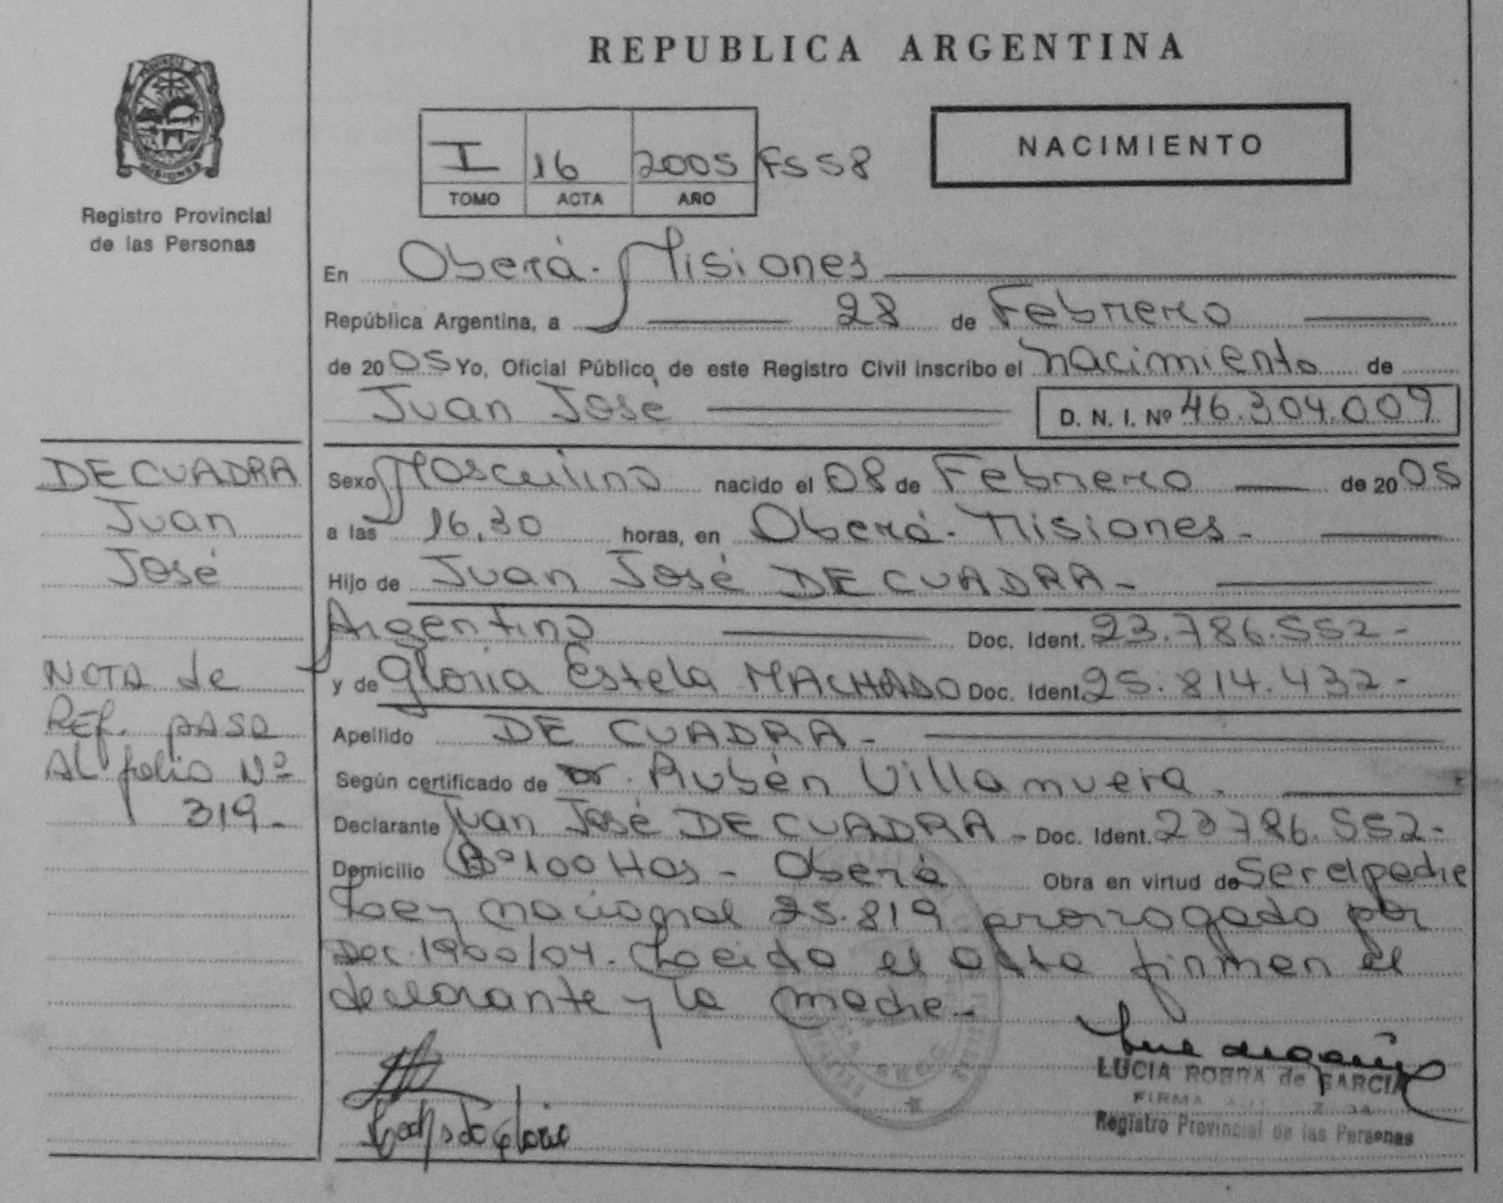 REPUBLICA ARGENTINA
PROVINCIA DE MISIONES
Registro Provincial
de las Personas
I 16 2005 FS 58
TOMO ACTA AÑO
NACIMIENTO
En Oberá - Misiones
República Argentina, a 28 de Febrero
de 2005 Yo, Oficial Público, de este Registro Civil inscribo el nacimiento de
Juan José D. N. I. Nº 46.304.009
DE CUADRA
Juan
José
NOTA de
REF. PASA
AL folio Nº
319-
Sexo Masculino nacido el 08 de Febrero de 2005
a las 16,30 horas, en Oberá - Misiones -
Hijo de Juan José DE CUADRA -
Argentino Doc. Ident. 23.786.552-
y de Gloria Estela MACHADO Doc. Ident. 25.814.432-
Apellido DE CUADRA -
Según certificado de Dr. Rubén Villanueva.
Declarante Juan José DE CUADRA - Doc. Ident. 23786.552-
Domicilio Bº 100 Has - Oberá Obra en virtud de Ser el padre
Ley Nacional 25.819 prorrogado por
Dec. 1900/04. Leído el acta firman el
declarante y la madre -
LUCIA ROBRA de GARCIA
FIRMA
Registro Provincial de las Personas